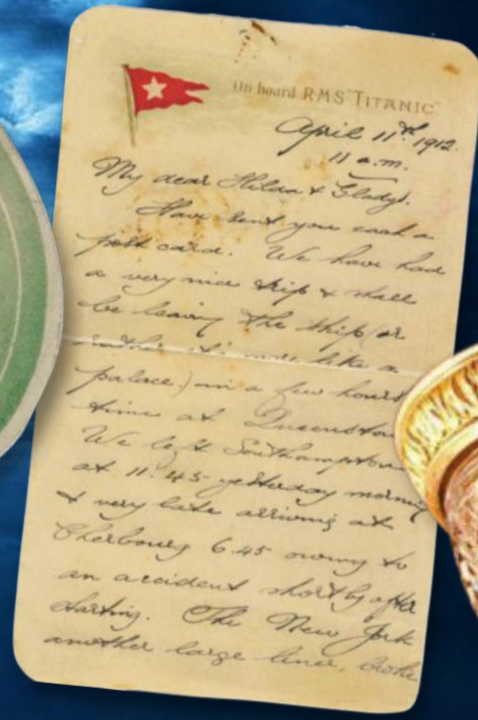 On board R.M.S "TITANIC"
April 11th 1912.
11 a.m.
My dear Hilda & Gladys.
Have sent you each a
post card. We have had
a very nice trip & shall
be leaving the ship (or
rather it's more like a
palace) in a few hours
time at Queenstown
We left Southampton
at 11.45 yesterday morning
& very late arriving at
Cherbourg 6.45 owing to
an accident shortly after
starting. The New York
another large liner, broke